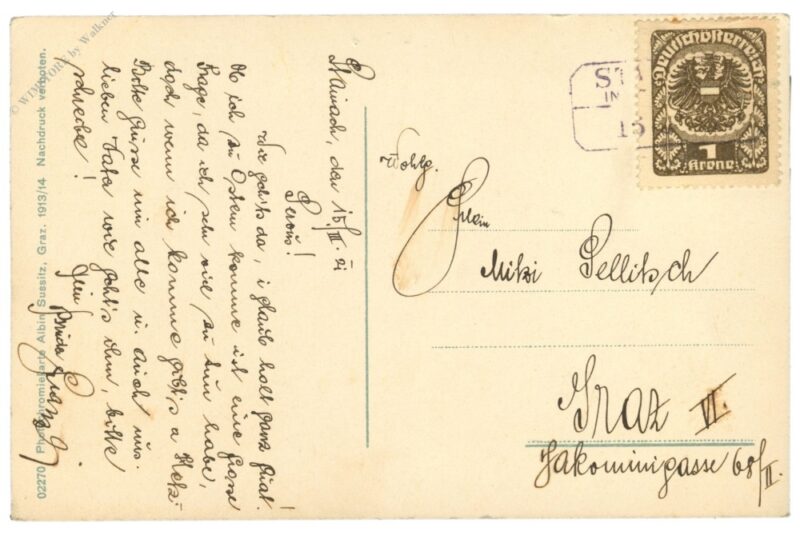 Stainach, den 15/III. 21
Servus!
Wie geht's da, i glaub halt ganz guat!
Ob ich zu Ostern komme ist eine grosse
Frage, da ich sehr viel zu tun habe,
doch wenn ich komme gibt's a Hetz.
Bitte grüsse mir alle u. auch uns.
lieben Vater wie geht's ihm, bitte
schreibe!
Dein Bruder Franz
© WIMSTORY by Walkner
02270 Photochromiekarte Albin Sussitz, Graz. 1913/14 Nachdruck verboten.
ST
IN
15
Deutschösterreich
1
Krone
Wohlg.
Frlein
Mitzi Pellitsch
Graz VI.
Jakominigasse 68/II.